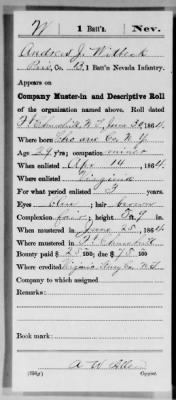 W 1 Batt'n. Nev.
Andrew J.
Co. B, 1 Batt'n Nevada Infantry.
Appears on
Company Muster-in and Descriptive Roll
of the organization named above. Roll dated
Ft Churchill, N.T., June 30, 1864
Where born Co N.Y.
Age 29 y'rs; occupation miner
When enlisted Apr 14, 1864
Where enlisted Virginia
For what period enlisted 3 years.
Eyes blue; hair brown
Complexion fair; height 5 ft. 9 in.
When mustered in June 25, 1864
Where mustered in Ft Churchill
Bounty paid $ 25 100; due $ 75 100
Where credited Virginia Storey Co N.T.
Company to which assigned
Remarks:
Book mark:
Copyist.